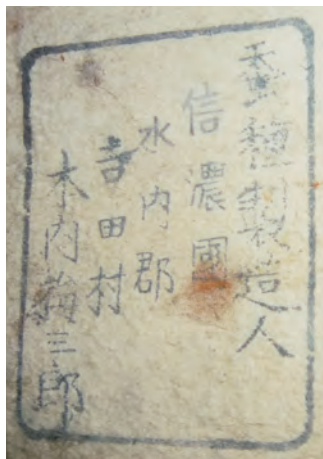 蚕種製造人
信濃國
水内郡
吉田村
木内三郎